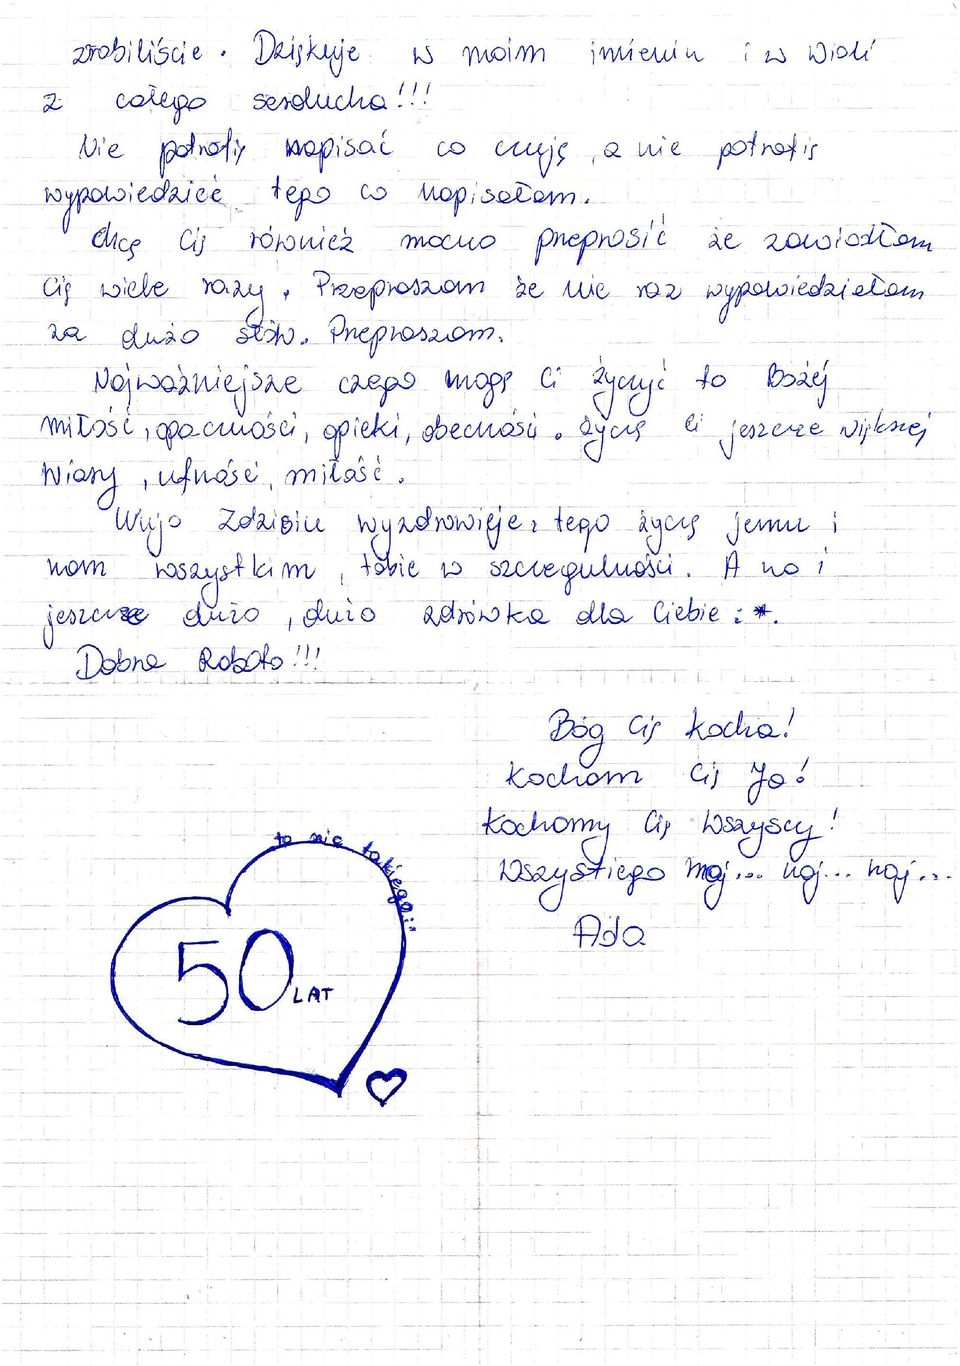 zrobiliście. Dziękuje w moim imieniu i w Wioli
z całego serducha!!!
Nie potrafię napisać co czuję, a nie potrafię
wypowiedzieć tego co napisałam.
Chcę Cię również mocno przeprosić że zawiodłam
Cię wiele razy. Przepraszam że nie raz wypowiedziałam
za dużo słów. Przepraszam.
Najważniejsze czego mogę Ci życzyć to Bożej
miłość, opaczności, opieki, obecności. Życzę Ci jeszcze większej
wiary, ufność, miłość.
Wujo Zdzisiu wyzdrowieje, tego życzę jemu i
nam wszystkim, tobie w szczegulności. A no i
jeszcze dużo, dużo zdrówka dla Ciebie :*.
Dobra Robota!!!
Bóg Cię kocha!
Kocham Cię Ja!
Kochamy Cię Wszyscy!
Wszystiego naj... naj... naj...
Ada
to nic takiego;"
50 LAT